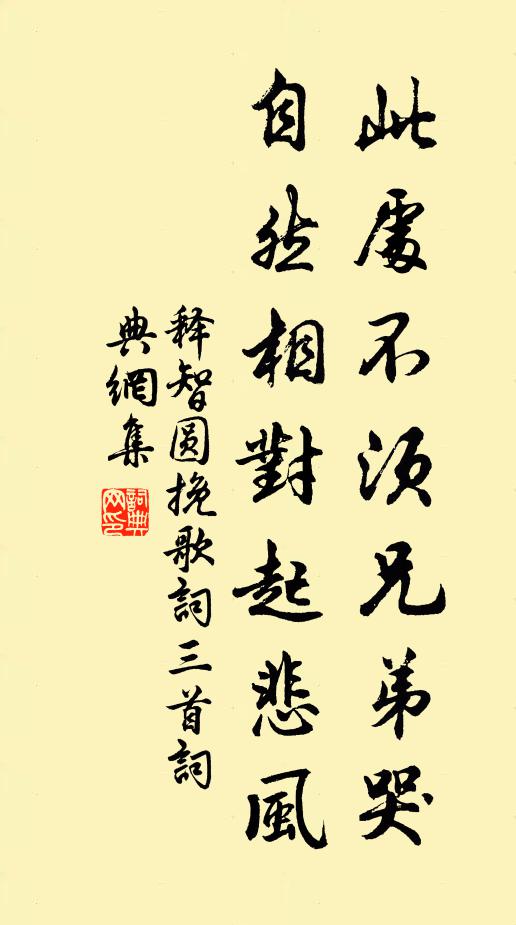 此處不須兄弟哭
自然相對起悲風
释智圆挽歌詞三首詞
典網集
詞典网印